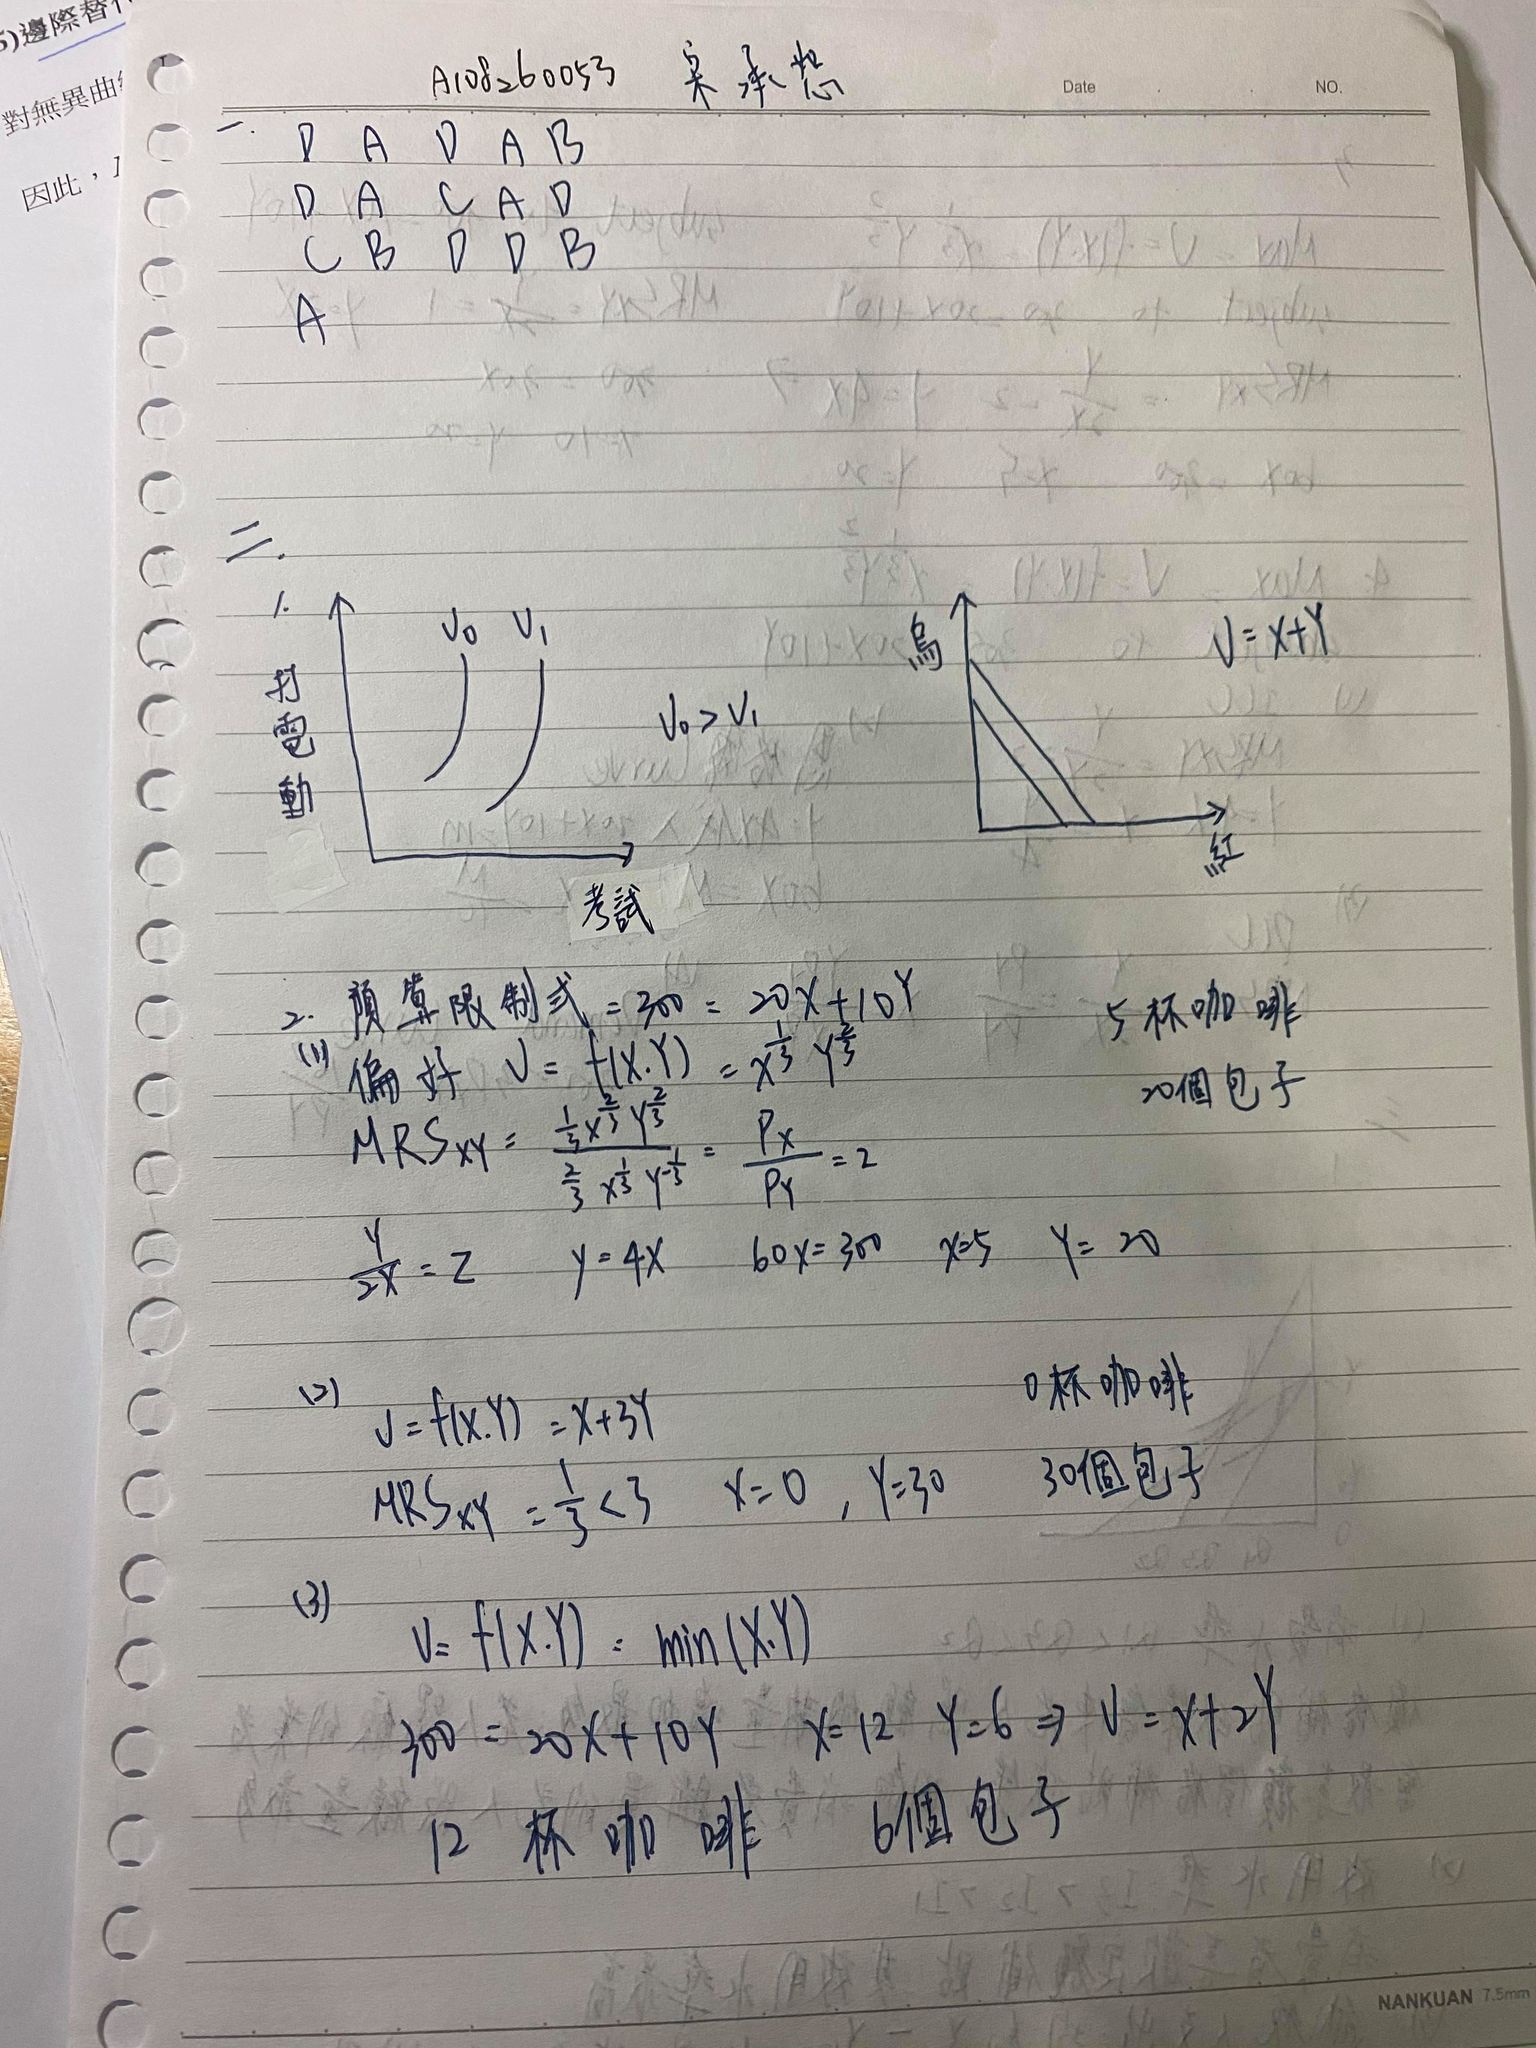 5)邊際替
對無異曲
因此，
A108260053 承
Date NO.
一. D A D A B
D A C A D
C B D D B
A
二.
1. 打電動 U0 U1 U0 > U1 考試
烏 U = X+Y 紅
2. 預算限制式 = 300 = 20X+10Y 5杯咖啡
(1) 偏好 U = f(X.Y) = X^{1/3} Y^{2/3} 20個包子
MRSXY = \frac{\frac{1}{3} X^{\frac{2}{3}} Y^{\frac{2}{3}}}{\frac{2}{3} X^{\frac{1}{3}} Y^{-\frac{1}{3}}} = \frac{PX}{PY} = 2
\frac{Y}{2X} = 2 Y = 4X 60X = 300 X=5 Y = 20
(2) 0杯咖啡
U = f(X.Y) = X+3Y
MRSXY = \frac{1}{3} < 3 X=0, Y=30 30個包子
(3)
U = f(X.Y) = min(X.Y)
300 = 20X+10Y X=12 Y=6 ⇒ U = X+2Y
12 杯咖啡 6個包子
NANKUAN 7.5mm